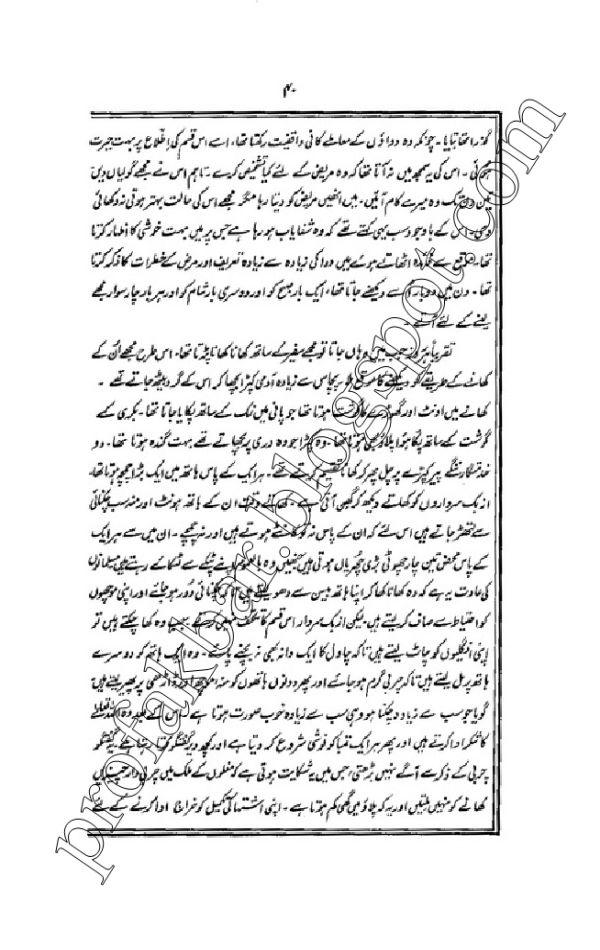 ۴۰
گورا تھا بتایا۔ چونکہ وہ دواؤں کے معاملے کافی واقفیت رکھتا تھا، اسے اس قسم کی اطلاع پر بہت حیرت
ہوئی۔ اس کی یہ سمجھ میں نہ آتا تھا کہ وہ مریض کے لئے کیا تشخیص کرے۔ تاہم اس نے مجھے گولیاں دیں
تین دن تک وہ میرے کام آئیں۔ میں انھیں مریض کو دیتا رہا مگر مجھے اس کی حالت بہتر ہوتی نہ دکھائی
دی۔ اس کے باوجود سب یہی کہتے تھے کہ وہ شفایاب ہو رہا ہے جس پر میں بہت خوشی کا اظہار کرتا
تھا۔ موقع سے فائدہ اٹھاتے ہوئے میں دوا کی زیادہ سے زیادہ تعریف اور مرض کے خطرات کا ذکر کرتا
تھا۔ دن میں دو بار اسے دیکھنے جاتا تھا، ایک بار صبح کو اور دوسری بار شام کو اور ہر بار چار سوار مجھے
لینے کے لئے آتے۔
تقریباً ہر روز جب میں وہاں جاتا تو مجھے سفیر کے ساتھ کھانا کھانا پڑتا تھا، اس طرح مجھے اُن کے
کھانے کے طریقے کو دیکھنے کا موقع ملا۔ پچاس سے زیادہ آدمی کپڑا بچھا کر اس کے گرد بیٹھ جاتے تھے۔
کھانے میں اونٹ اور گھوڑے کا گوشت ہوتا تھا جو پانی میں نمک کے ساتھ پکایا جاتا تھا۔ بکری کے
گوشت کے ساتھ پکا ہوا پلاؤ بھی ہوتا تھا۔ وہ کپڑا جو وہ دری پر بچھاتے تھے بہت گندہ ہوتا تھا۔ دو
خدمتگار ننگے پیر کپڑے پر چل پھر کر کھانا تقسیم کرتے تھے۔ ہر ایک کے پاس ہاتھ میں ایک بڑا چمچہ ہوتا تھا،
ازبک سرداروں کو کھاتے دیکھ کر گھن آتی ہے۔ کھاتے وقت ان کے ہاتھ ہونٹ اور منہ سب چکنائی
سے لتھڑ جاتے ہیں اس لئے کہ ان کے پاس نہ تو کانٹے ہوتے ہیں اور نہ چمچے۔ ان میں سے ہر ایک
کے پاس محض تین چار چھوٹی بڑی چھریاں ہوتی ہیں جنھیں وہ اپنے پٹکے سے لٹکائے رہتے ہیں مسلمانوں
کی عادت یہ ہے کہ وہ کھانا کھا کر اپنا ہاتھ بیسن سے دھو لیتے ہیں تاکہ چکنائی دور ہو جائے اور اپنی مونچھوں
کو احتیاط سے صاف کر لیتے ہیں۔ لیکن ازبک سردار اس قسم کا تکلف نہیں کرتے جب وہ کھا چکتے ہیں تو
اپنی انگلیوں کو چاٹ لیتے ہیں تاکہ چاول کا ایک دانہ بھی نہ بچنے پائے۔ وہ ایک ہاتھ کو دوسرے
ہاتھ پر مل لیتے ہیں تاکہ چربی گرم ہو جائے اور پھر دونوں ہاتھوں کو منہ مونچھ اور داڑھی پر پھیر لیتے ہیں
گویا جو سب سے زیادہ چکنا ہو وہی سب سے زیادہ خوب صورت ہوتا ہے۔ اس کے بعد وہ اللہ تعالیٰ
کا شکر ادا کرتے ہیں اور پھر ہر ایک تمباکو نوشی شروع کر دیتا ہے اور کچھ دیر گفتگو کرتا رہتا ہے گفتگو
چربی کے ذکر سے آگے نہیں بڑھتی جس میں یہ شکایت ہوتی ہے کہ مغلوں کے ملک میں چربی دار چیزیں
کھانے کو نہیں ملتیں اور یہ کہ پلاؤ میں گھی کم ہوتا ہے۔ اپنی اشتہا کی تکمیل کو خراج ادا کرنے کے لئے
profakbar.blogspot.com